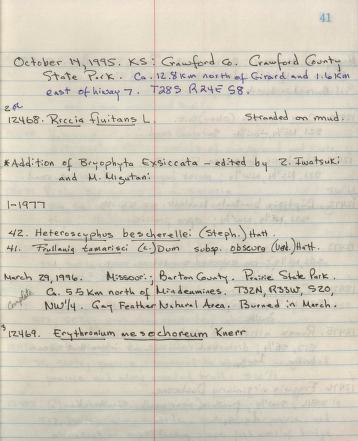 41
October 14, 1995. KS: Crawford Co. Crawford County
State Park. Ca. 12.8 km north of Girard and 1.6 km
east of hiway 7. T28S R24E S8.
12468. Riccia fluitans L. Stranded on mud.
*Addition of Bryophyta Exsiccata – edited by Z. Iwatsuki
and M. Mizutani
1-1977
42. Heteroscyphus bescherellei (Steph.) Hatt.
41. Frullania tamarisci (L.) Dum subsp. obscura (Verd.) Hatt.
March 29, 1996. Missouri; Barton County. Prairie State Park.
Ca. 5.5 km north of Mindenmines. T32N, R33W, S20,
Complete
NW¼. Gay Feather Natural Area. Burned in March.
12469. Erythronium mesochoreum Knerr